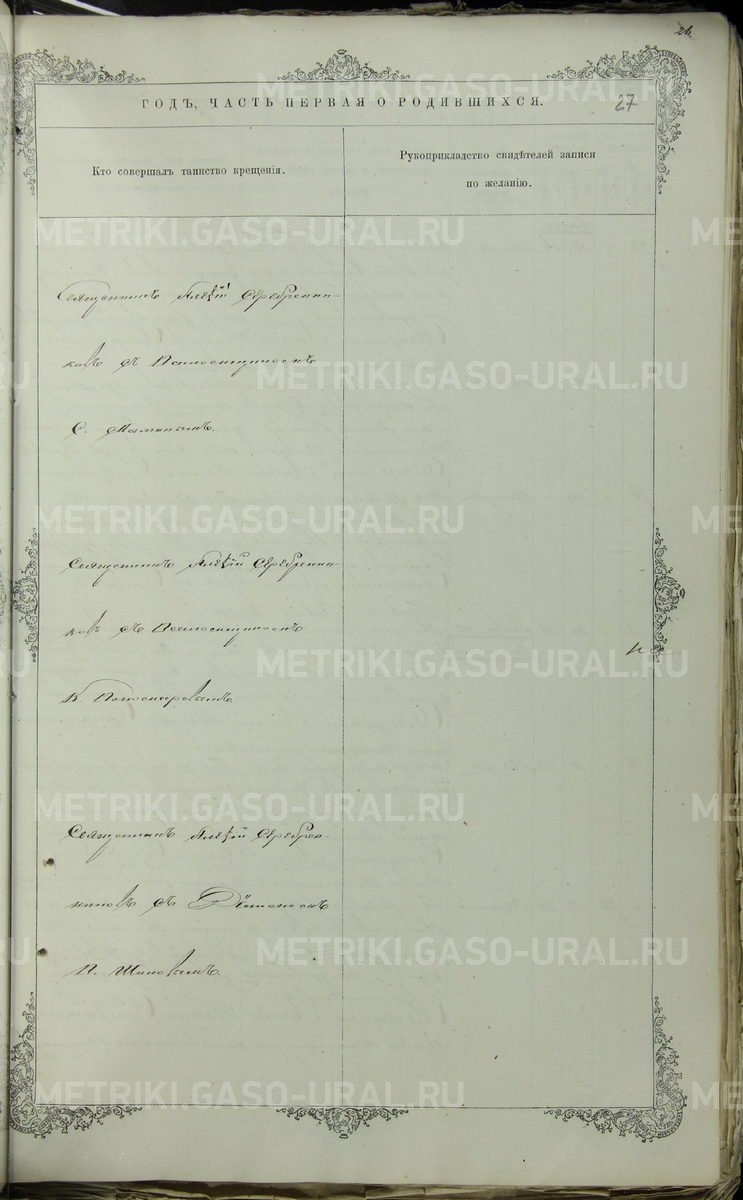 26.
ГОДЪ, ЧАСТЬ ПЕРВАЯ О РОДИВШИХСЯ.
27
Кто совершалъ таинство крещенія.
Рукоприкладство свидѣтелей записи
по желанію.
Священникъ Алексій Серебренни-
ковъ съ Псаломщикомъ
С. Маминымъ.
Священникъ Алексій Серебренни-
ковъ съ Псаломщикомъ
К. Пономаревымъ.
Священникъ Алексій Серебрен-
никовъ съ Діакономъ
П.
METRIKI.GASO-URAL.RU